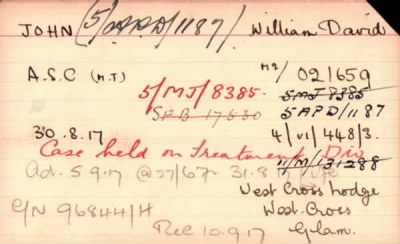 JOHN (5/APD/1187) William David
A.S.C (M.T) M2/ 021659
5/MJ/8385. 5MJ 8385
SFB 17530 5 APD/1187
30.8.17 4/VI/448/3.
Case held on Treatment Div 11/M/131288
Ad. 5 9.17 @ 27/6 31.8.17
West Cross Lodge
C/N 96844/H West Cross
Rec 10.9.17 Glam.